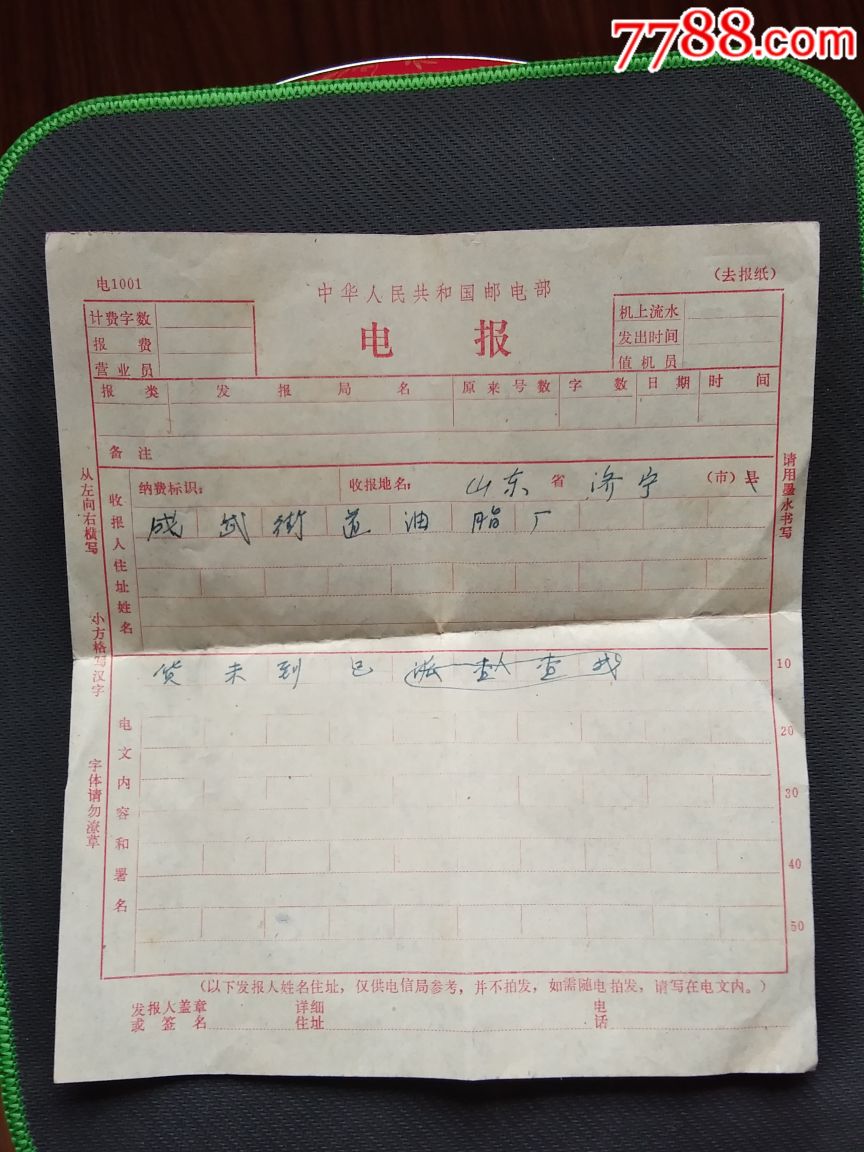 7788.com
电1001
(去报纸)
中华人民共和国邮电部
电报
计费字数
报费
营业员
机上流水
发出时间
值机员
报类 发报局名 原来号数 字数 日期 时间
备注
纳费标识: 收报地名: 山东省济宁(市)县
收报人住址姓名
成武街道油脂厂
货未到已派人查找
电文内容和署名
10
20
30
40
50
从左向右横写
小方格写汉字
字体请勿潦草
请用墨水书写
(以下发报人姓名住址，仅供电信局参考，并不拍发，如需随电拍发，请写在电文内。)
发报人盖章 详细 电
或签名 住址 话